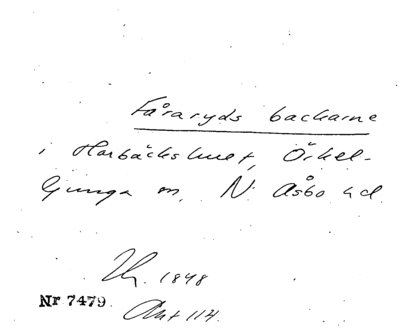 Fåraryds backarne
i Harbäckshult, Örkel-
ljunga sn, N. Åsbo hd.
1848
Nr 7479.
Ant 114.